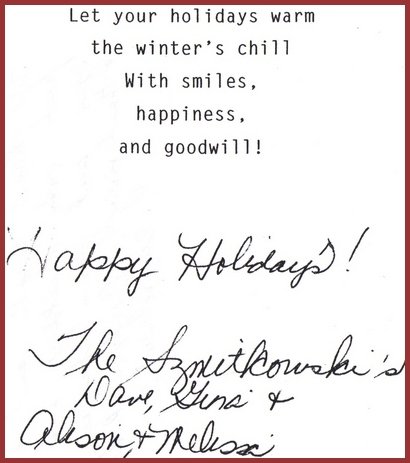 Let your holidays warm
the winter's chill
With smiles,
happiness,
and goodwill!
Happy Holidays!
The Szmitkowski's
Dave, Gina &
Alison, & Melissa